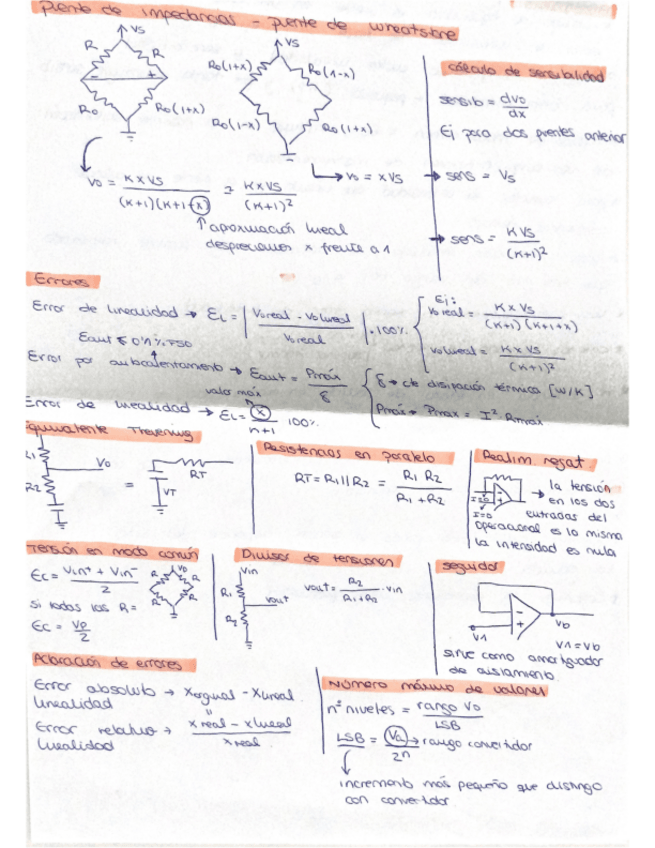 Puente de impedancias - puente de wheatstone
VS
R
R
-
+
R0
R0(1+x)
VS
R0(1+x)
R0(1-x)
R0(1-x)
R0(1+x)
V0 = KXVS / (K+1)(K+1+x) ≅ KXVS / (K+1)²
aproximación lineal
despreciamos x frente a 1
V0 = XVS
cálculo de sensibilidad
sensib = dV0 / dx
Ej para dos puentes anterior
→ sens = VS
→ sens = KVS / (K+1)²
Errores
Error de linealidad → EL = | V0real - V0lineal / V0real | · 100%
Ej:
V0real = KXVS / (K+1)(K+1+x)
V0lineal = KXVS / (K+1)²
Error por autocalentamiento → Eaut = Pmáx / δ
δ → cte disipación térmica [W/K]
Pmáx → Pmax = I² Rmax
valor máx
Error de linealidad → EL = x / n+1 100%
Equivalente Thevenin
R1
R2
V0
=
RT
VT
Resistencias en paralelo
RT = R1 || R2 = R1 R2 / R1 + R2
Realim. negat.
I=0
I=0
→ la tensión
en los dos
entradas del
operacional es la misma
la intensidad es nula
Tensión en modo común
EC = Vin+ + Vin- / 2
si todas las R =
EC = VP / 2
R
R
R
R
Divisor de tensiones
Vin
R1
R2
Vout
Vout = R2 / R1+R2 · Vin
seguidor
-
+
V1
V0
V1 = V0
sirve como amortiguador
de aislamiento
Aclaración de errores
Error absoluto → Xorginal - Xlineal
linealidad
Error relativo → Xreal - Xlineal / Xreal
linealidad
Número máximo de valores
nº niveles = rango V0 / LSB
LSB = / 2n → rango convertidor
incremento más pequeño que distingo
con convertidor